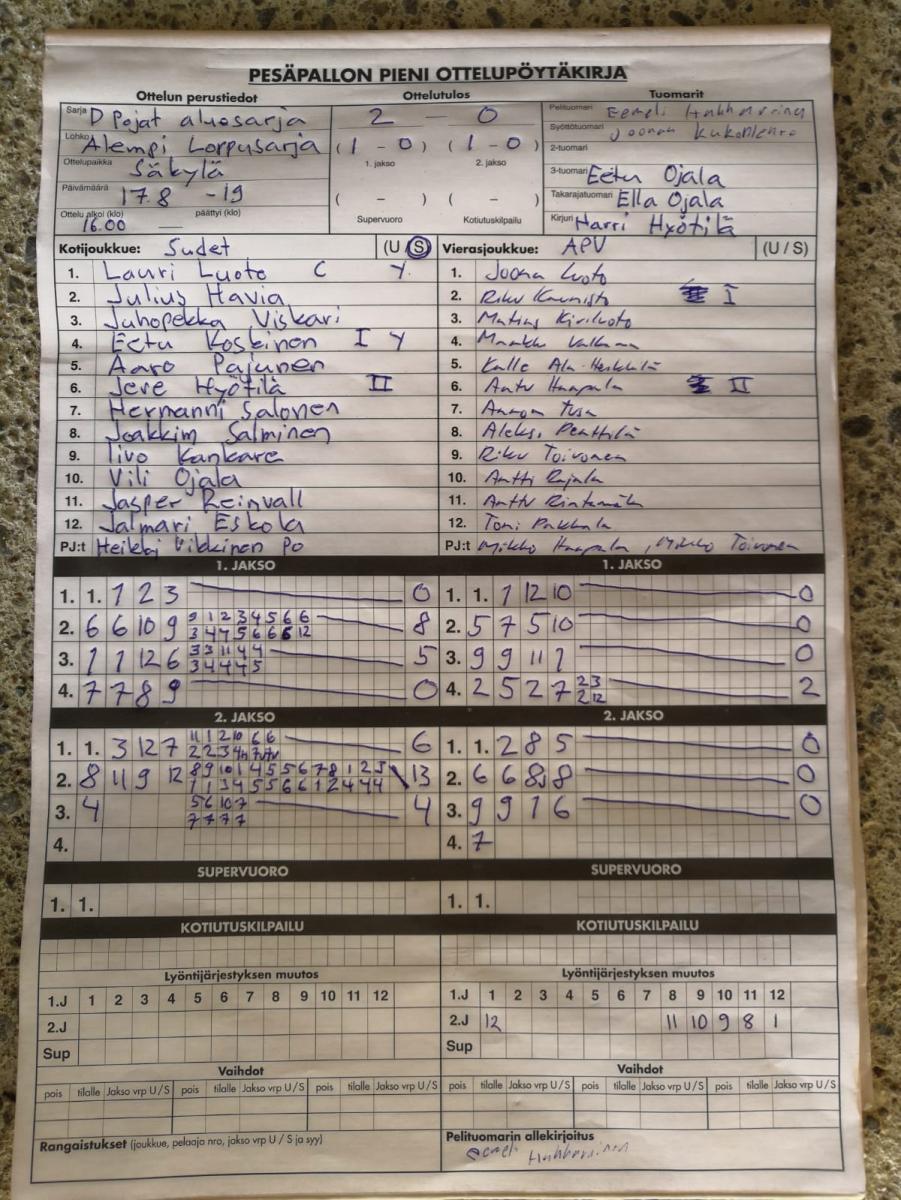 PESÄPALLON PIENI OTTELUPÖYTÄKIRJA
Ottelun perustiedot Ottelutulos Tuomarit
Sarja D Pojat aluesarja 2 — 0 Pelituomari Eemeli
Lohko Alempi Lorpusarja (1 - 0) (1 - 0) Syöttötuomari Joonan
1. jakso 2. jakso 2-tuomari
Ottelupaikka Säkylä 3-tuomari Eetu Ojala
Päivämäärä 17.8 -19 ( - ) ( - ) Takarajatuomari Ella Ojala
Ottelu alkoi (klo) 16.00 päättyi (klo) — Supervuoro Kotiutuskilpailu Kirjuri Harri Hyötilä
Kotijoukkue: Sudet (U / S) Vierasjoukkue: APV (U / S)
1. Lauri Luoto C Y. 1. Joona Luoto
2. Julius Havia 2. Riku Kaunisto I
3. Juhopekka Viskari 3. Matias Kiviluoto
4. Eetu Koskinen I Y 4. Markku
5. Aaro Pajunen 5. Kalle Ala-Heikkilä
6. Jere Hyötilä II 6. Antu Haapala II
7. Hermanni Salonen 7.
8. Joakkim Salminen 8. Aleksi Penttilä
9. Iivo Kankare 9. Riku Toivonen
10. Vili Ojala 10. Antti Rajala
11. Jasper Reinvall 11. Anttu Rintamäki
12. Jalmari Eskola 12. Toni Pakkala
PJ:t Heikki Vikkinen Po PJ:t Mikko Haapala, Mikko Toivonen
1. JAKSO 1. JAKSO
1. 1. 1 2 3 0 1. 1. 1 12 10 0
2. 6 6 10 9 9 1 2 3 4 5 6 6 8 2. 5 7 5 10 0
3 4 4 5 6 6 6 12
3. 1 1 12 6 3 3 11 4 4 5 3. 9 9 11 1 0
3 4 4 4 5
4. 7 7 8 9 0 4. 2 5 2 7 2 3 2
2 12
2. JAKSO 2. JAKSO
1. 1. 3 12 7 11 1 2 10 6 6 6 1. 1. 2 8 5 0
2 2 3 4
2. 8 11 9 12 8 9 10 1 4 5 5 6 7 8 1 2 3 13 2. 6 6 8 8 0
1 1 3 4 5 5 6 6 1 2 4 4 4
3. 4 5 6 10 7 4 3. 9 9 1 6 0
7 7 7 7
4. 4. 7
SUPERVUORO SUPERVUORO
1. 1. 1. 1.
KOTIUTUSKILPAILU KOTIUTUSKILPAILU
Lyöntijärjestyksen muutos Lyöntijärjestyksen muutos
1.J 1 2 3 4 5 6 7 8 9 10 11 12 1.J 1 2 3 4 5 6 7 8 9 10 11 12
2.J 2.J 12 11 10 9 8 1
Sup Sup
Vaihdot Vaihdot
pois tilalle Jakso vrp U / S pois tilalle Jakso vrp U / S pois tilalle Jakso vrp U / S pois tilalle Jakso vrp U / S pois tilalle Jakso vrp U / S pois tilalle Jakso vrp U / S
Rangaistukset (joukkue, pelaaja nro, jakso vrp U / S ja syy) Pelituomarin allekirjoitus